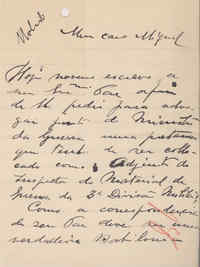 Meu caro Miguel
Hoje mesmo escrevo a
seu Pae afim
de lhe pedir para advo-
gar junto do Ministro
da Guerra uma pretensão
que tenho de ser collo-
cado como Adjunto do
Inspector do Material de
Guerra da 3ª Divisão Militar
Como a correspondencia
de seu Pae deve ser uma
verdadeira Babilonia